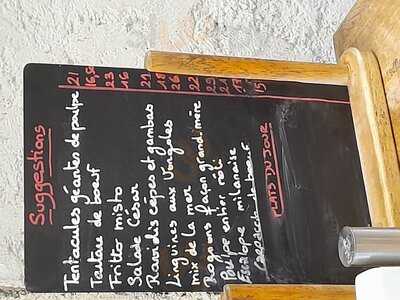 Suggestions
Tentacules géantes de poulpe 21
Tartare de boeuf 16,50
Fritto misto 23
Salade César 16
Raviolis cèpes et gambas 21
Linguines aux Vongoles 18
mix de la mer 26
Rognons façon grand mère 22
Poulpe entier rôti 29
Escalope milanaise 21
Carpaccio de boeuf 17
15
PLATS DU JOUR